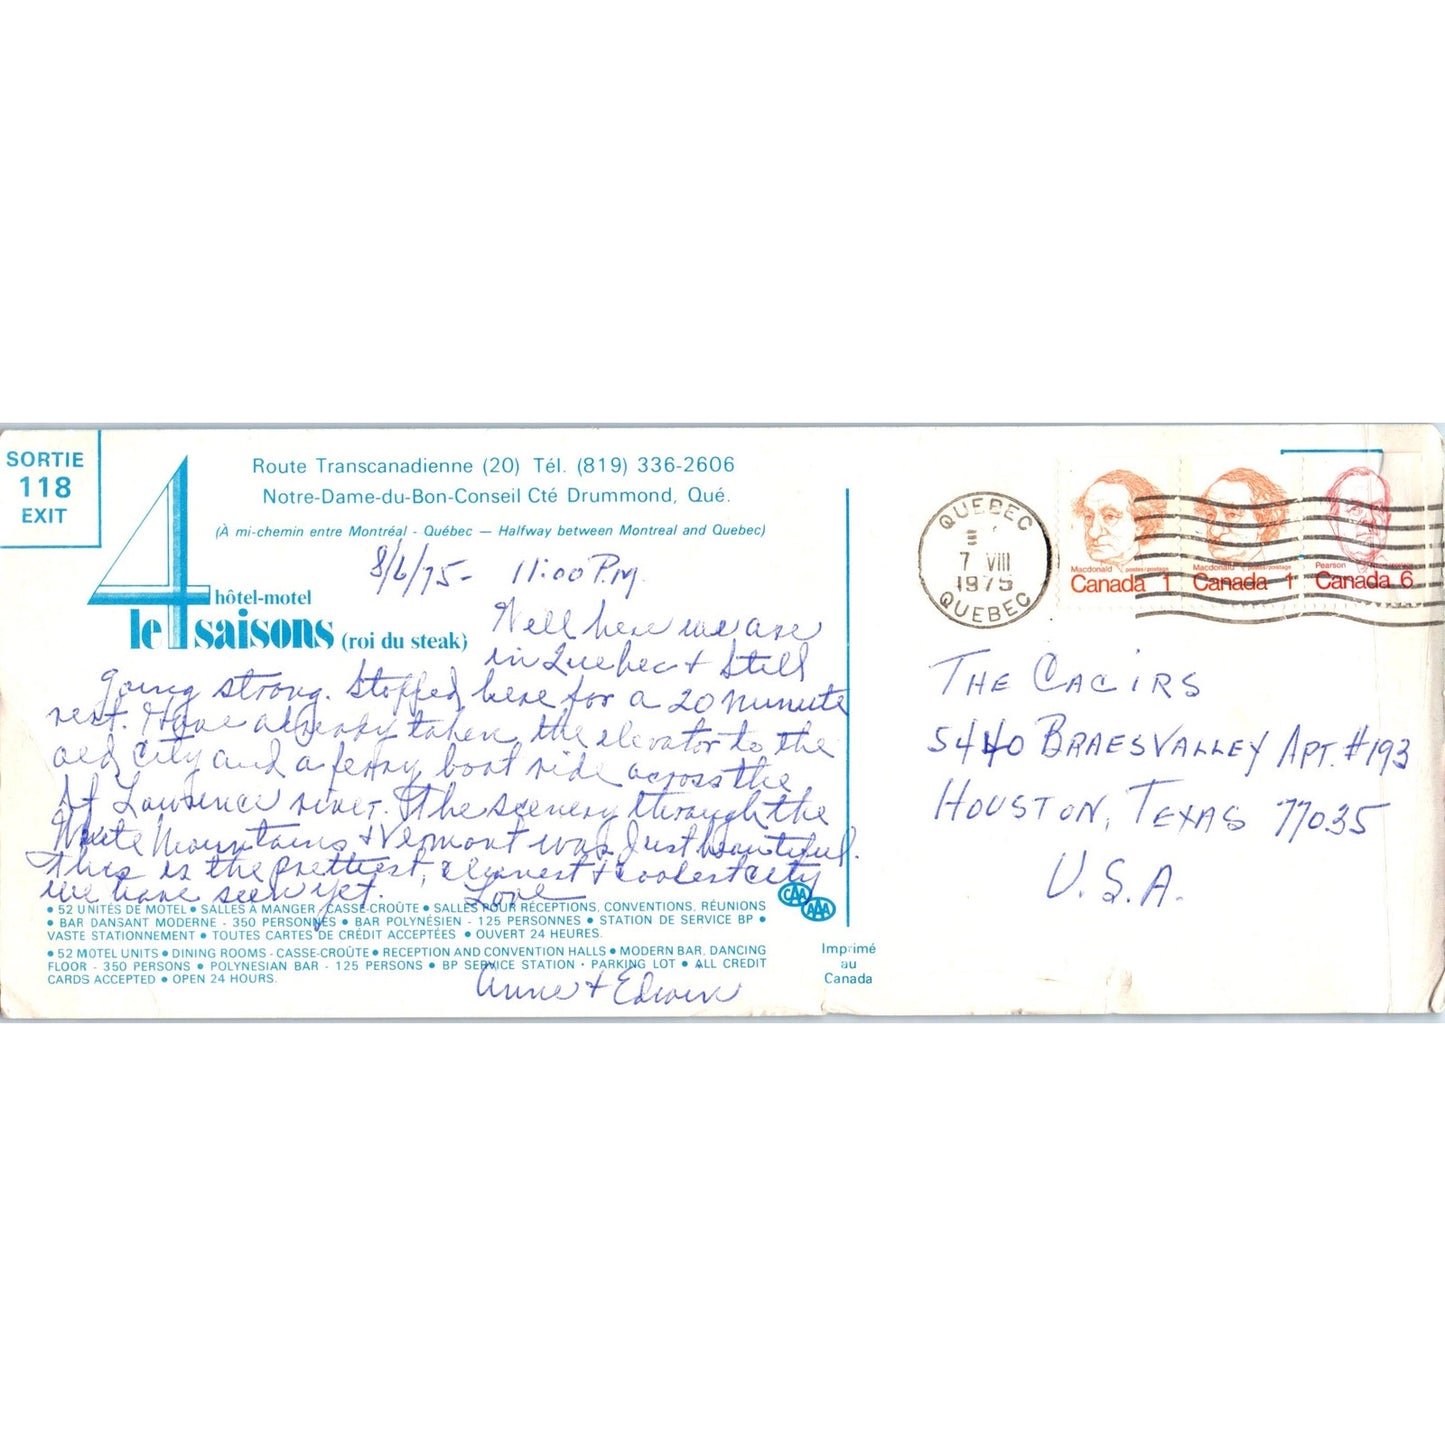 SORTIE
118
EXIT
Route Transcanadienne (20) Tél. (819) 336-2606
Notre-Dame-du-Bon-Conseil Cté Drummond, Qué.
(À mi-chemin entre Montréal - Québec — Halfway between Montreal and Quebec)
hôtel-motel
le 4 saisons (roi du steak)
8/6/75- 11:00 P.M.
Well here we are
in Quebec + Still
going strong. Stopped here for a 20 minute
rest. Have already taken the elevator to the
old City and a ferry boat ride across the
St Lawrence river. The scenery through the
White Mountains + Vermont was just beautiful.
This is the prettiest, cleanest + coolest city
we have seen yet. Love
Anne + Edwin
• 52 UNITÉS DE MOTEL • SALLES À MANGER, CASSE-CROÛTE • SALLES POUR RÉCEPTIONS, CONVENTIONS, RÉUNIONS
• BAR DANSANT MODERNE - 350 PERSONNES • BAR POLYNÉSIEN - 125 PERSONNES • STATION DE SERVICE BP •
VASTE STATIONNEMENT • TOUTES CARTES DE CRÉDIT ACCEPTÉES • OUVERT 24 HEURES.
• 52 MOTEL UNITS • DINING ROOMS - CASSE-CROÛTE • RECEPTION AND CONVENTION HALLS • MODERN BAR, DANCING
FLOOR - 350 PERSONS • POLYNESIAN BAR - 125 PERSONS • BP SERVICE STATION - PARKING LOT • ALL CREDIT
CARDS ACCEPTED • OPEN 24 HOURS.
CAA
AAA
Imprimé
au
Canada
QUEBEC
7 VIII
1975
QUEBEC
Macdonald postes/postage
Canada 1
Macdonald postes/postage
Canada 1
Pearson
Canada 6
THE CACIRS
5440 BRAESVALLEY APT. #193
HOUSTON, TEXAS 77035
U.S.A.